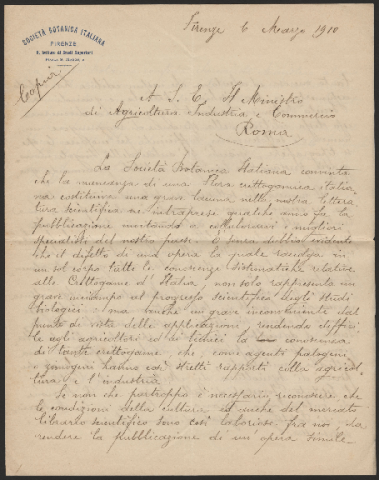 SOCIETÀ BOTANICA ITALIANA
FIRENZE
R. Istituto di Studi Superiori
Copia
Firenze 6 Marzo 1910
A S. E. Il Ministro
di Agricoltura Industria, e Commercio
Roma
La Società Botanica Italiana convinta
che la mancanza di una Flora crittogamica italia,
na costituiva una grave lacuna nella nostra lettera
tura scientifica ne intraprese qualche anno fa la
pubblicazione invitando a collaborarvi i migliori
specialisti del nostro paese. È senza dubbio evidente
che il difetto di una opera la quale raccolga in
un sol corpo tutte le conoscenze sistematiche relative
alle Crittogame d'Italia, non solo rappresenta un
grave inciampo al progresso scientifico degli studi
biologici, ma anche un grave inconveniente dal
punto di vista delle applicazioni, rendendo diffici
le agli agricoltori ed ai tecnici la conoscenza
di tante crittogame, che come agenti patogeni
o zimogeni hanno così stretti rapporti colla agricol,
tura e l'industria.
Se non che purtroppo è necessario riconoscere che
le condizioni della cultura ed anche del mercato
librario scientifico sono così laboriose fra noi, da
rendere la pubblicazione di un opera simile